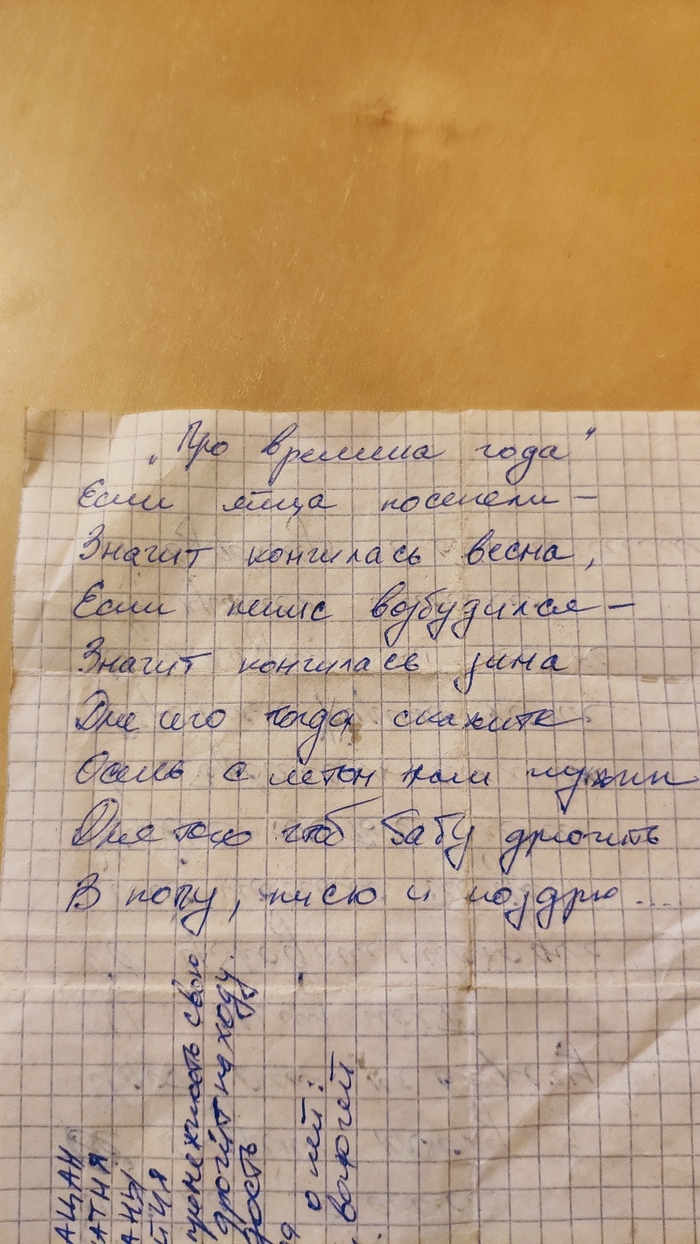 „Про времена года"
Если яйца посенели —
Значит кончилась весна,
Если пенис возбудился —
Значит кончилась зима
Для чего тогда скажите
Осень с летом нам нужны
Для того чтоб бабу дрючить
В попу, писю и ноздрю...
промежность свою
дрочит на ходу.
о ней:
АЦАН
АТНЯ
АНЫ